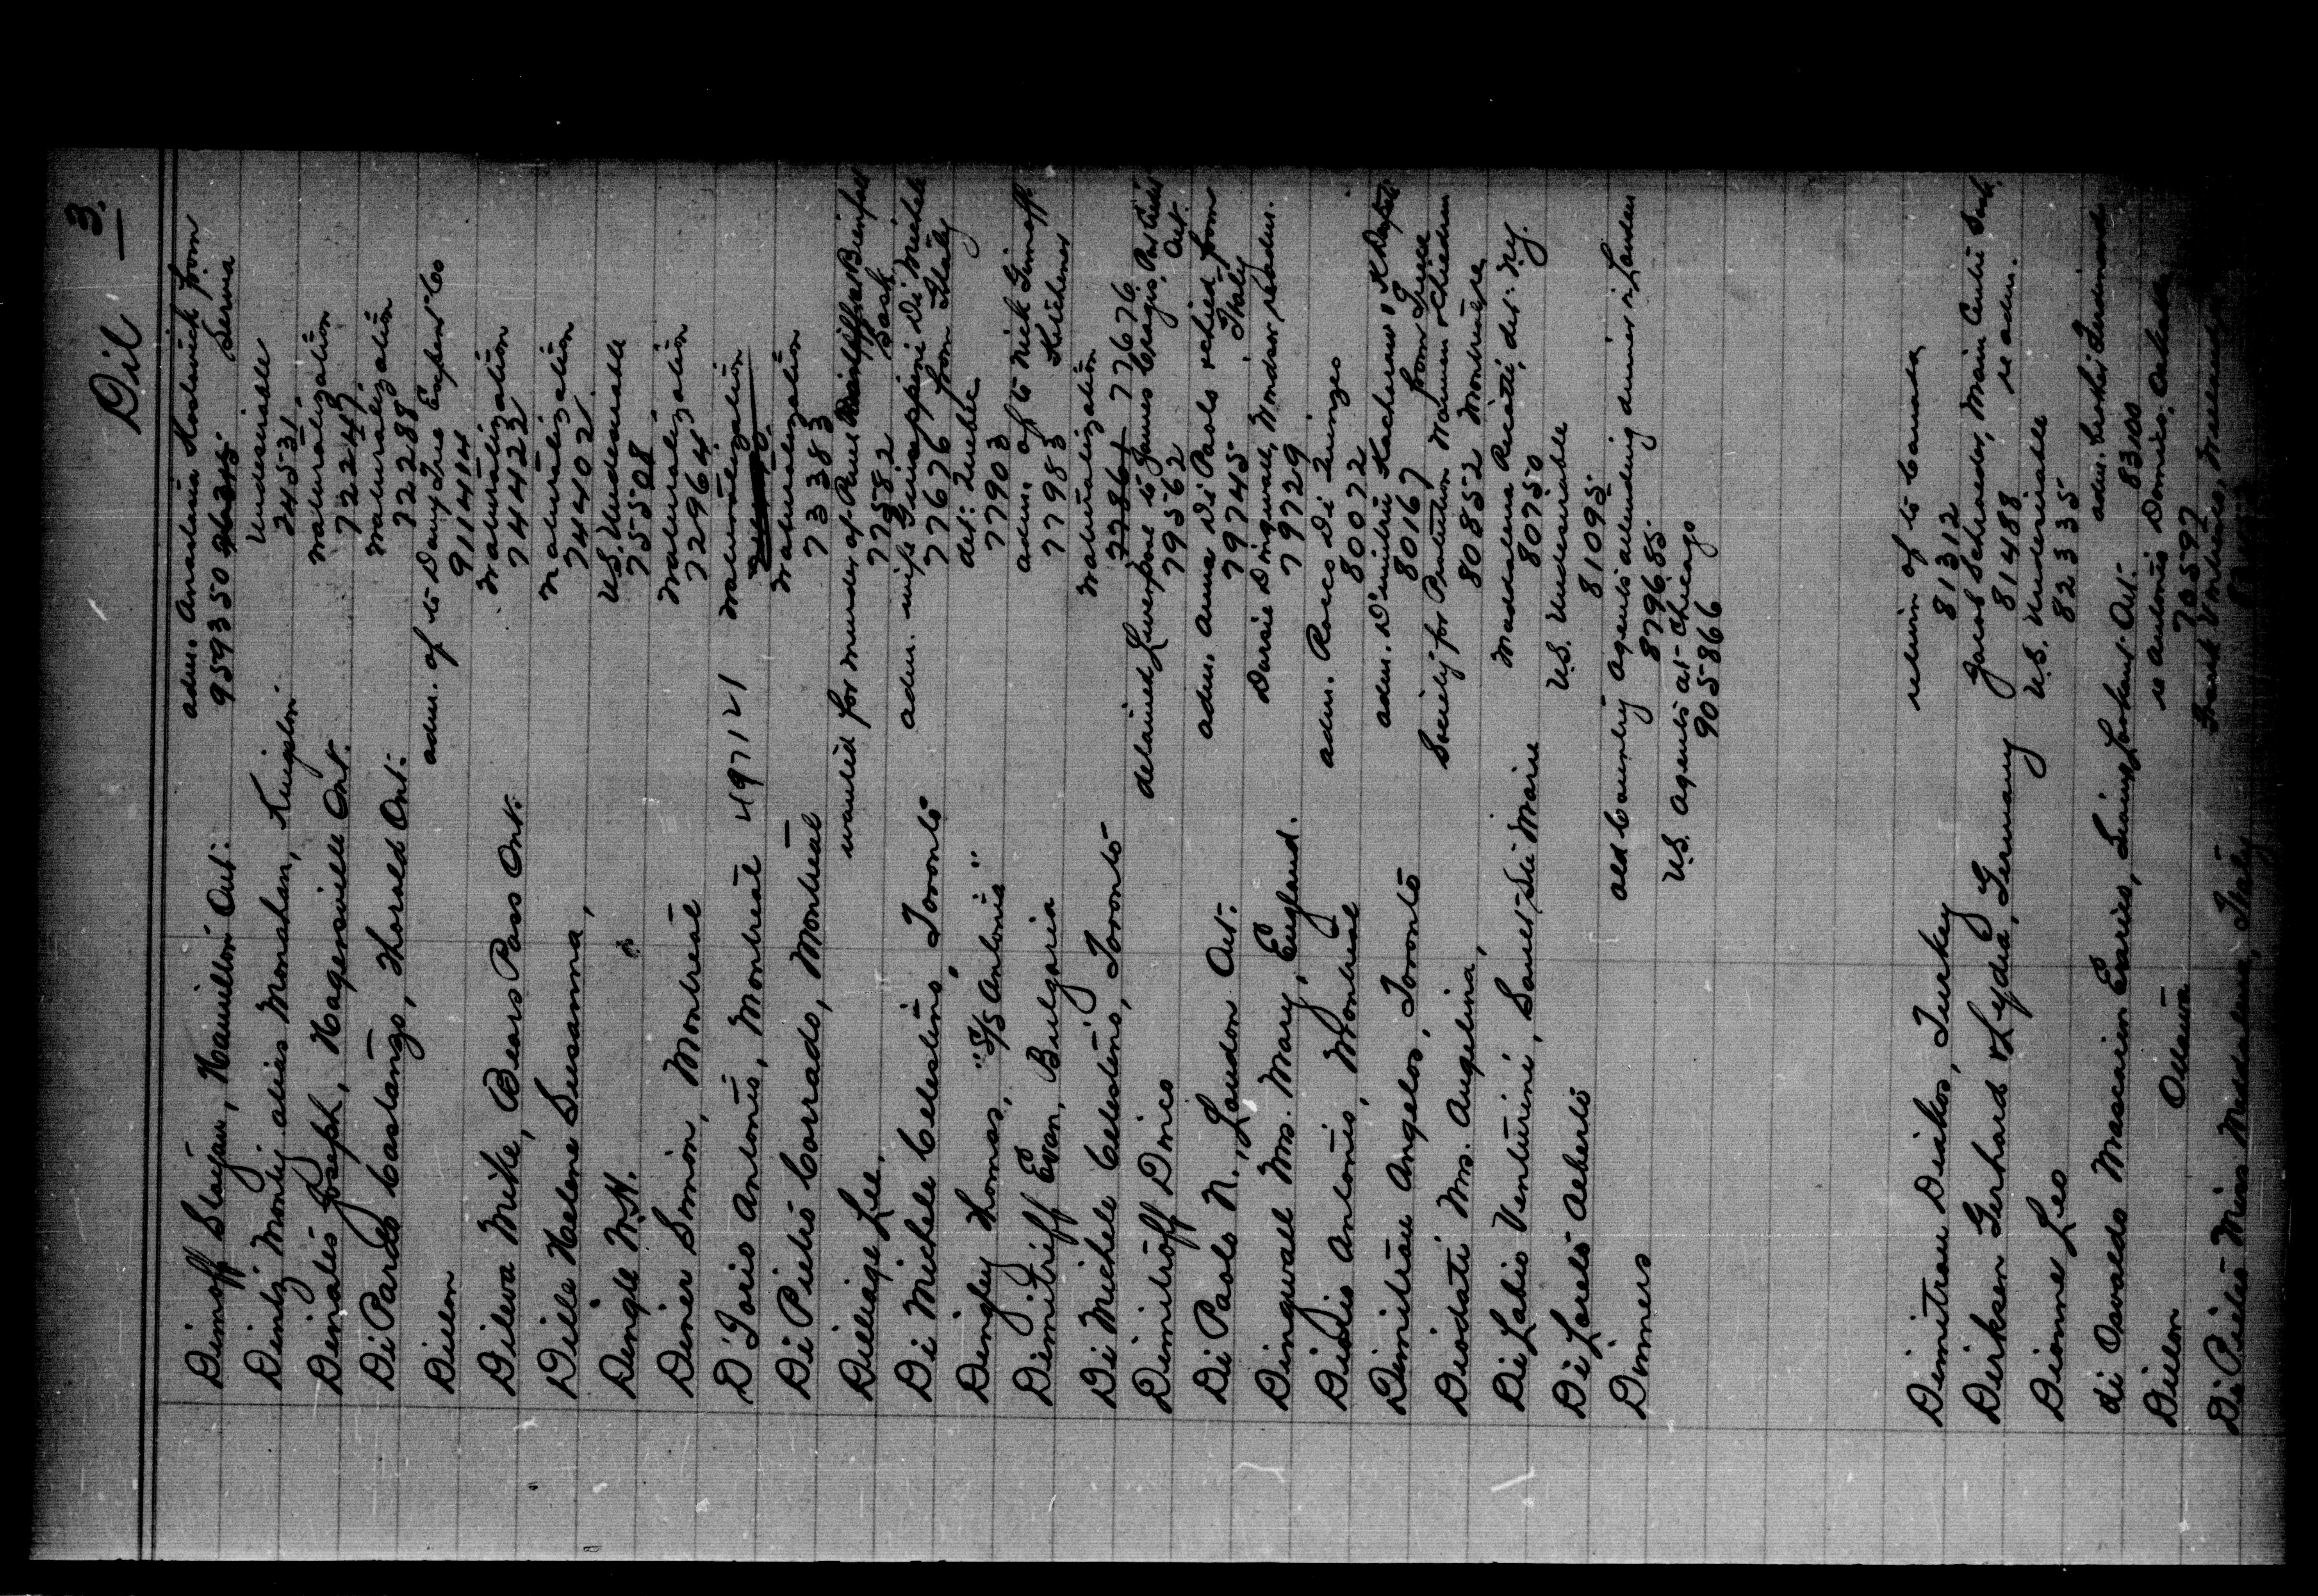 Dil 3.
Dimoff Stayan, Hamilton Ont. adm. Anastasia from
959350 Servia
Dintz Monty alias Monahan, Kingston Undesirable
74531
Dinatis Joseph, Hagersville Ont. Naturalization
72247
Di Pardo Costango, Thorold Ont. Naturalization
72288
Dillon adm. of to Davy Tree Expert Co
911414
Dileva Mike, Bears Pass Ont. Naturalization
74423
Dille Helene Susanna, Naturalization
74402
Dingle M.H. U.S. Undesirable
75508
Diner Simon, Montreal Naturalization
72964
D'Iorio Antonio, Montreal 49712 Naturalization
Di Pietro Corrado, Montreal Naturalization
73383
Dilliage Lee, wanted for murder of Paul Bienfait
77582 Sask
Di Michele Celestino, Toronto adm. wife Guiseppini Di Michele
77676 from Italy
Dingley Thomas, "S/S Antonia" det. Quebec
77903
Dimitrieff Evan, Bulgaria adm. of to Nick Simoff
77983 Kitchener
Di Michele Celestino, Toronto Naturalization
77861 77676
Dimitroff Dinco detained Liverpool to James Craig,
79562 Ont.
Di Paolo N., London Ont. adm. Anna Di Paolo & child from
79745 Italy
Dingwall Mrs. Mary, England. Dursie Dingwall, Windsor readm.
79729
Diodio Antonio, Montreal adm. Rocco Di
80072
Dimitrau Angelos, Toronto adm. D'imitrii
80167 from Greece
Diodati Mrs. Angelina, Society for Protection Women & Children
80852 Montreal
Di Labio Venturini, Sault Ste Marie Maddalena det. N.Y.
80750
Di Loreto Aeberto U.S. Undesirable
81095
Dinners old Country Agents attending dinner in London
879685
U.S. Agents at Chicago
905866
Dimitrau Diakos, Turkey return of to Canada
81312
Dirksen Gerhard & Lydia, Germany Jacob Schraeder, Main Centre Sask.
81488 re adm.
Dionne Leo U.S. Undesirable
82335
di Osvaldo Mascarin Ont. adm. Ferdinand
83100
Dillon Ottawa re Antonio Domico, Ottawa
70597
Di Pietro Miss Maddalena, Italy Frank